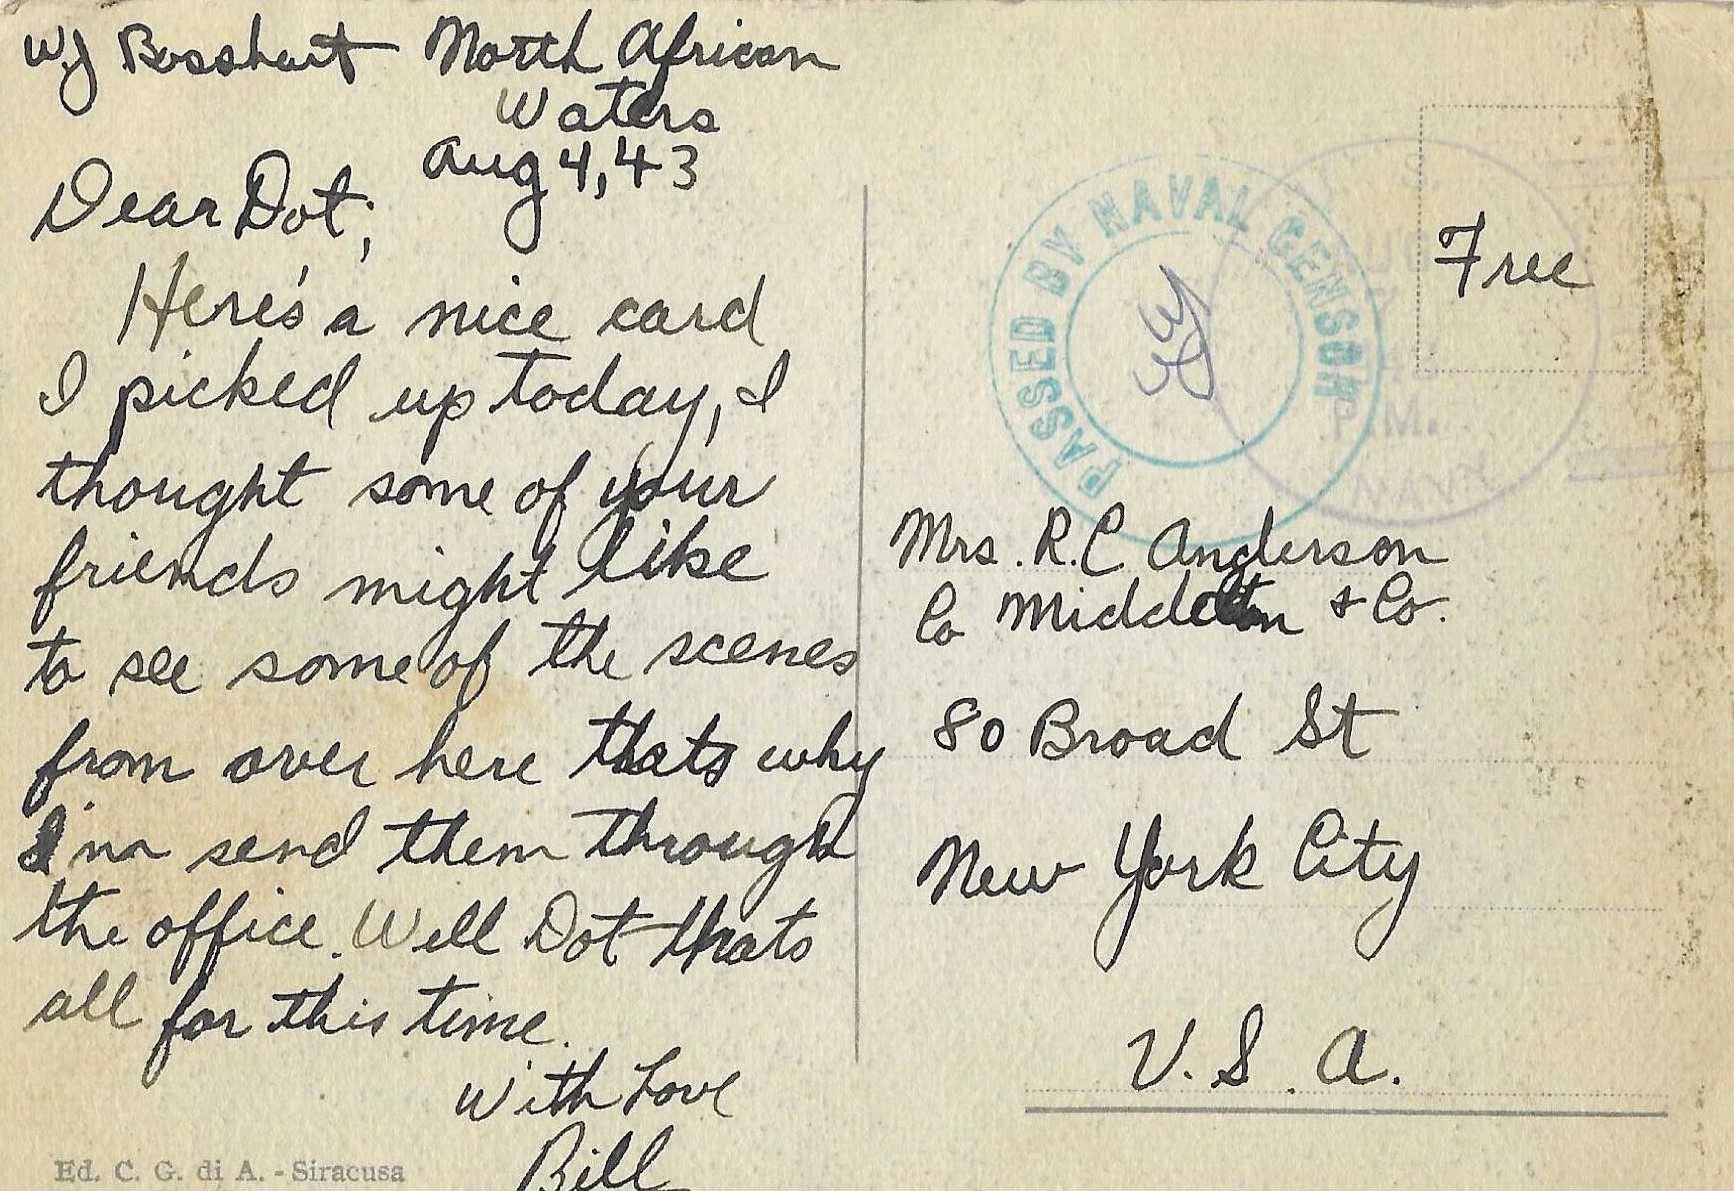 W.J Bosshart North African
Waters
Aug 4, 43
Dear Dot;
Here's a nice card
I picked up today, I
thought some of your
friends might like
to see some of the scenes
from over here thats why
I'm send them through
the office. Well Dot thats
all for this time.
With Love
Bill
Ed. C. G. di A. - Siracusa
PASSED BY NAVAL CENSOR
Free
S.
P.M.
NAVY
Mrs. R.C. Anderson
Co Middleton & Co.
80 Broad St
New York City
U.S.A.